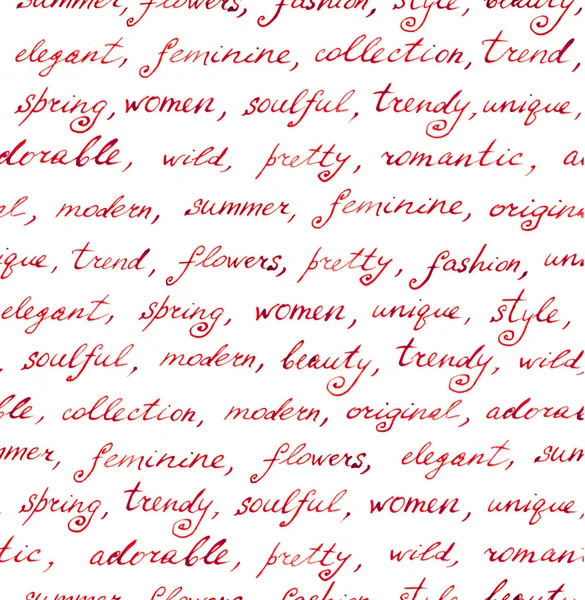 summer, flowers, fashion, style, beauty,
elegant, feminine, collection, trend,
spring, women, soulful, trendy, unique,
dorable, wild, pretty, romantic, a
el, modern, summer, feminine, origin
ique, trend, flowers, pretty, fashion, un
elegant, spring, women, unique, style,
, soulful, modern, beauty, trendy, wild,
ble, collection, modern, original, adora
mmer, feminine, flowers, elegant, sum
, spring, trendy, soulful, women, unique,
tic, adorable, pretty, wild, roman
summer, flowers, fashion, style, beauty